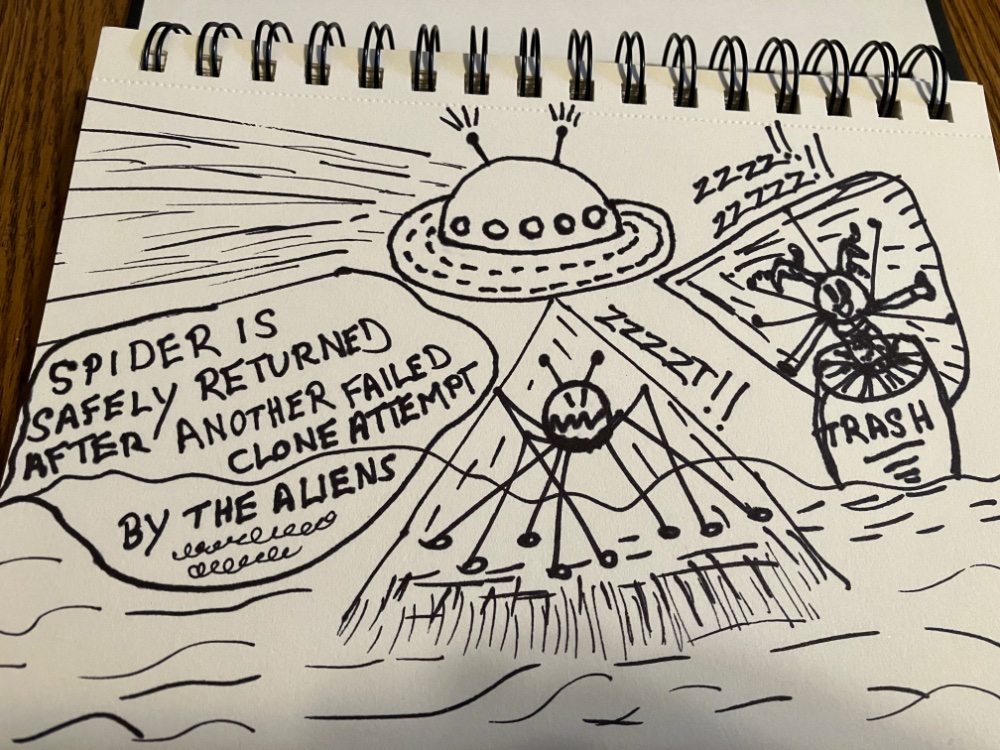 SPIDER IS
SAFELY RETURNED
AFTER ANOTHER FAILED
CLONE ATTEMPT
BY THE ALIENS
ZZZZT!!
ZZZZ!!
ZZZZZ!!
TRASH